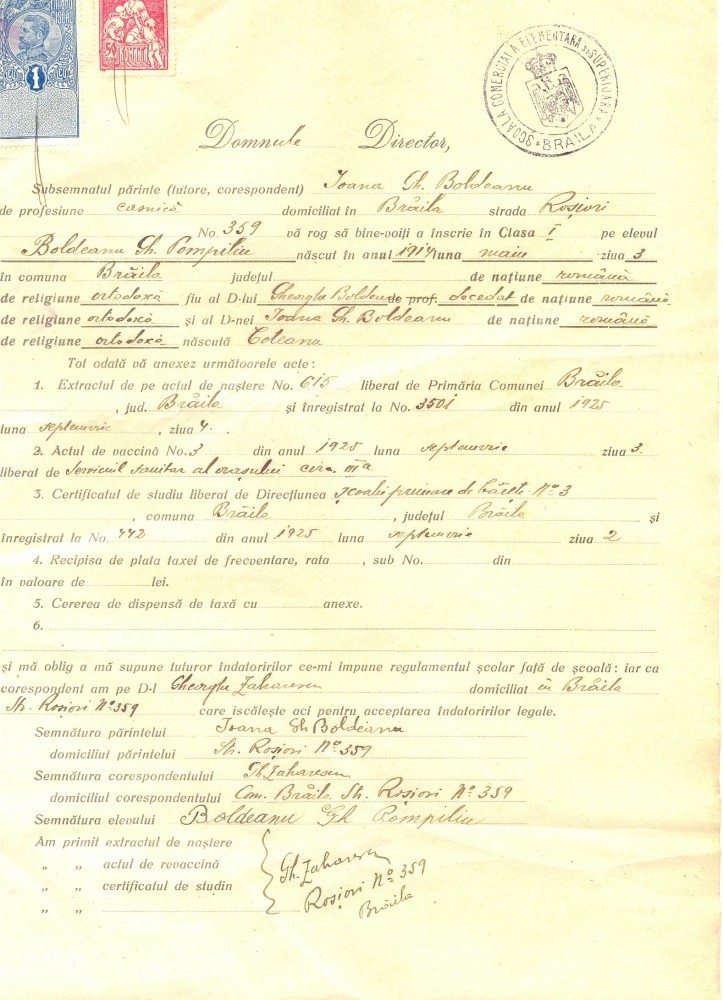 1
50 ROMANIA
ȘCOALA COMERCIALA ELEMENTARA ȘI SUPERIOARA * BRAILA *
Domnule Director,
Subsemnatul părinte (tutore, corespondent) Ioana Gh. Boldeanu
de profesiune casnică domiciliat în Brăila strada Roșiori
No. 359 vă rog să bine-voiți a înscrie în Clasa I pe elevul
Boldeanu Gh. Pompiliu născut în anul 1914 luna maiu ziua 3
în comuna Brăila județul de națiune română
de religiune ortodoxă fiu al D-lui Gheorghe Boldeanu de prof. decedat de națiune română
de religiune ortodoxă și al D-nei Ioana Gh. Boldeanu de națiune română
de religiune ortodoxă născută Coteanu
Tot odată vă anexez următoarele acte:
1. Extractul de pe actul de naștere No. 615 liberat de Primăria Comunei Brăila
, jud. Brăila și înregistrat la No. 3501 din anul 1925
luna septemvrie, ziua 4.
2. Actul de vaccină No. 3 din anul 1925 luna septemvrie ziua 3.
liberat de Serviciul sanitar al orașului circ. III a
3. Certificatul de studiu liberat de Direcțiunea școalei primare de băeți No 3
, comuna Brăila, județul Brăila și
înregistrat la No. 442 din anul 1925 luna septemvrie ziua 2
4. Recipisa de plata taxei de frecventare, rata , sub No. din
în valoare de lei.
5. Cererea de dispensă de taxă cu anexe.
6.
și mă oblig a mă supune tuturor îndatoririlor ce-mi impune regulamentul școlar față de școală: iar ca
corespondent am pe D-l Gheorghe Zaharescu domiciliat în Brăila
Str. Roșiori No 359 care iscălește aci pentru acceptarea îndatoririlor legale.
Semnătura părintelui Ioana Gh Boldeanu
domiciliul părintelui Str. Roșiori No 359
Semnătura corespondentului Gh Zaharescu
domiciliul corespondentului Com. Brăila Str. Roșiori No 359
Semnătura elevului Boldeanu Gh Pompiliu
Am primit extractul de naștere
„ „ actul de revaccină Gh. Zaharescu
„ „ certificatul de studin Roșiori No 359
„ „ Brăila